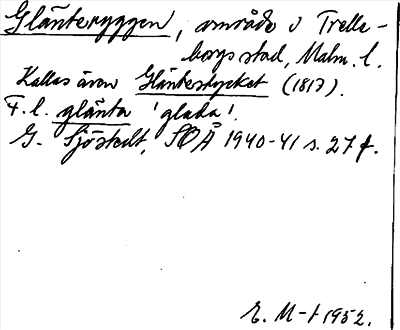 Glänteryggen, område i Trelle-
borgs stad, Malm. l.
Kallas även Gläntestycket (1817).
F. l. glänta 'glada'.
G. Sjöstedt, SOÅ 1940-41 s. 27 f.
E. M-t 1952.